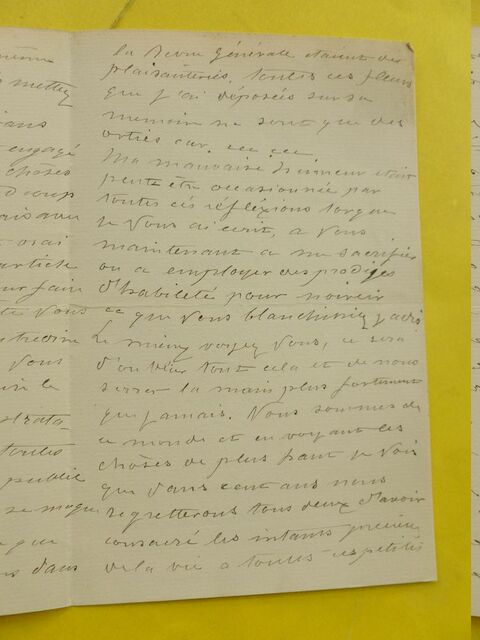 la Revue Générale etaient des
plaisanteries, toutes ces fleurs
que j'ai déposées sur sa
memoire ne sont que des
orties car. ... ...
Ma mauvaise humeur etait
peut être occasionnée par
toutes ces réfléxions lorsque
je Vous ai ecrit, a Vous
maintenant a me sacrifier
ou a employer des prodiges
d'habileté pour noircir
ce que Vous blanchissiez jadis
Le mieux voyez Vous, ce sera
d'oublier tout cela et de nous
serrer la main plus fortement
que jamais. Nous sommes de
ce monde et en voyant les
chôses de plus haut je vois
que dans cent ans nous
regretterons tous deux d'avoir
consacré les instants précieux
de la vie a toutes ces petites
mettez
ans
engagé
chôses
coup
vrai
article
faire
Vous
Vous
le
toutes
publie
se moque
que
dans